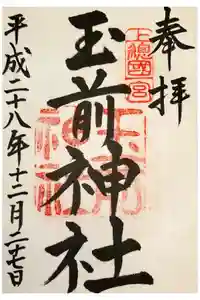 奉拝
上総國一宮
玉前神社
玉前神社
平成二十八年十二月二十七日